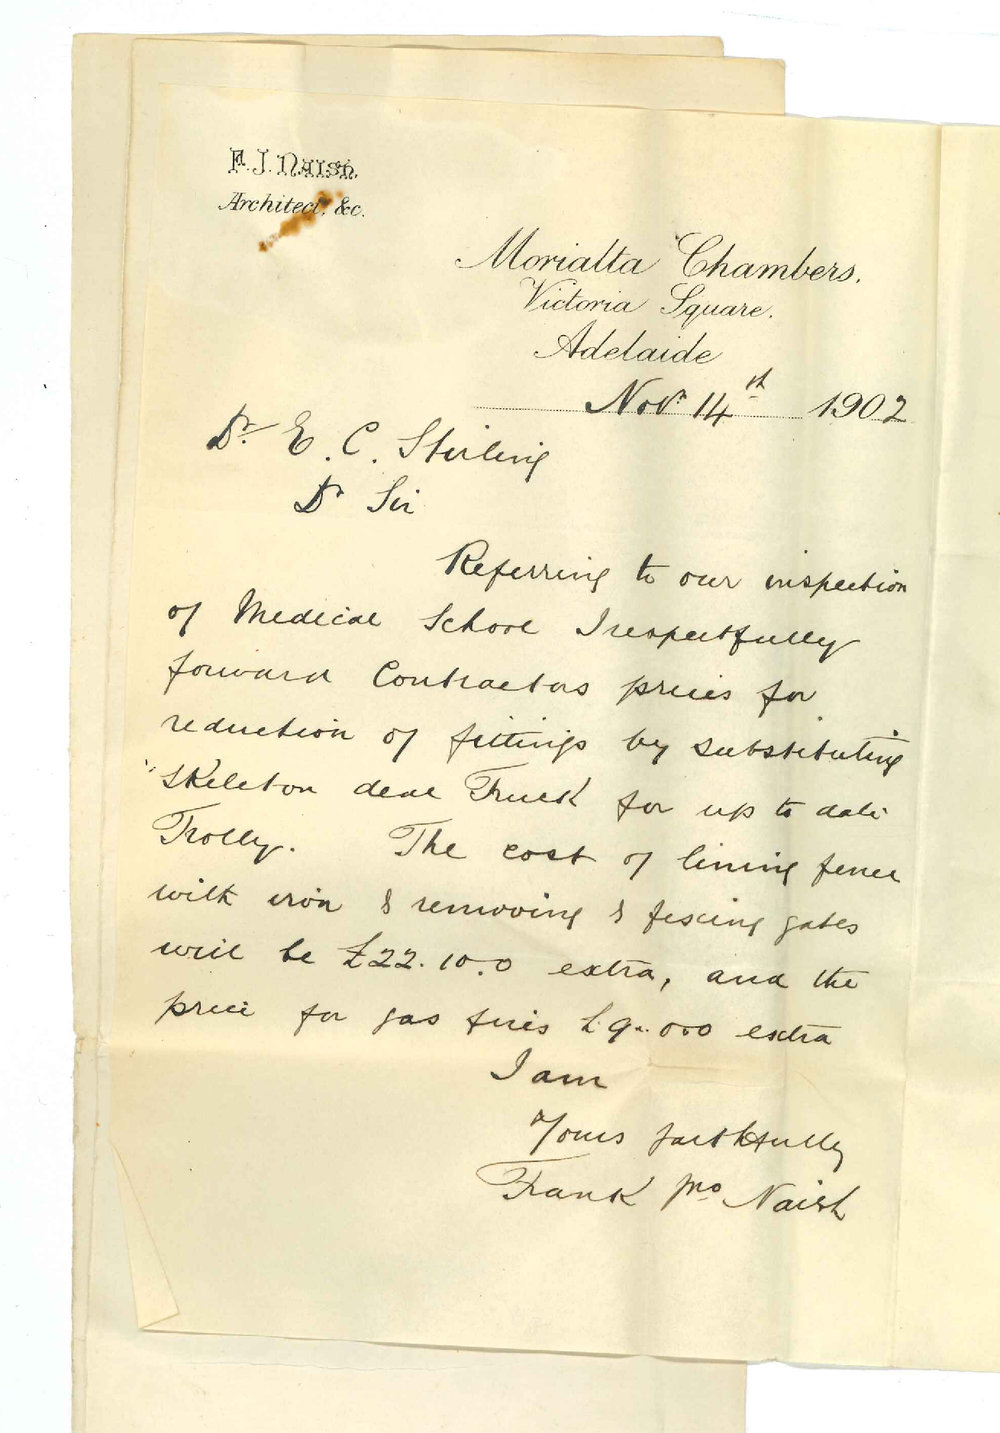 F. J. Naish.
Architect, &c.
Morialta Chambers.
Victoria Square.
Adelaide
Novr 14th 1902
Dr. E. C. Stirling
Dr Sir
Referring to our inspection
of Medical School I respectfully
forward Contractors prices for
reduction of fittings by substituting
skeleton deal Truck for up to date
Trolly. The cost of lining fence
with iron & removing & fixing gates
will be £22.10.0 extra, and the
price for gas fires £9..0.0 extra
I am
Yours faithfully
Frank Jno Naish